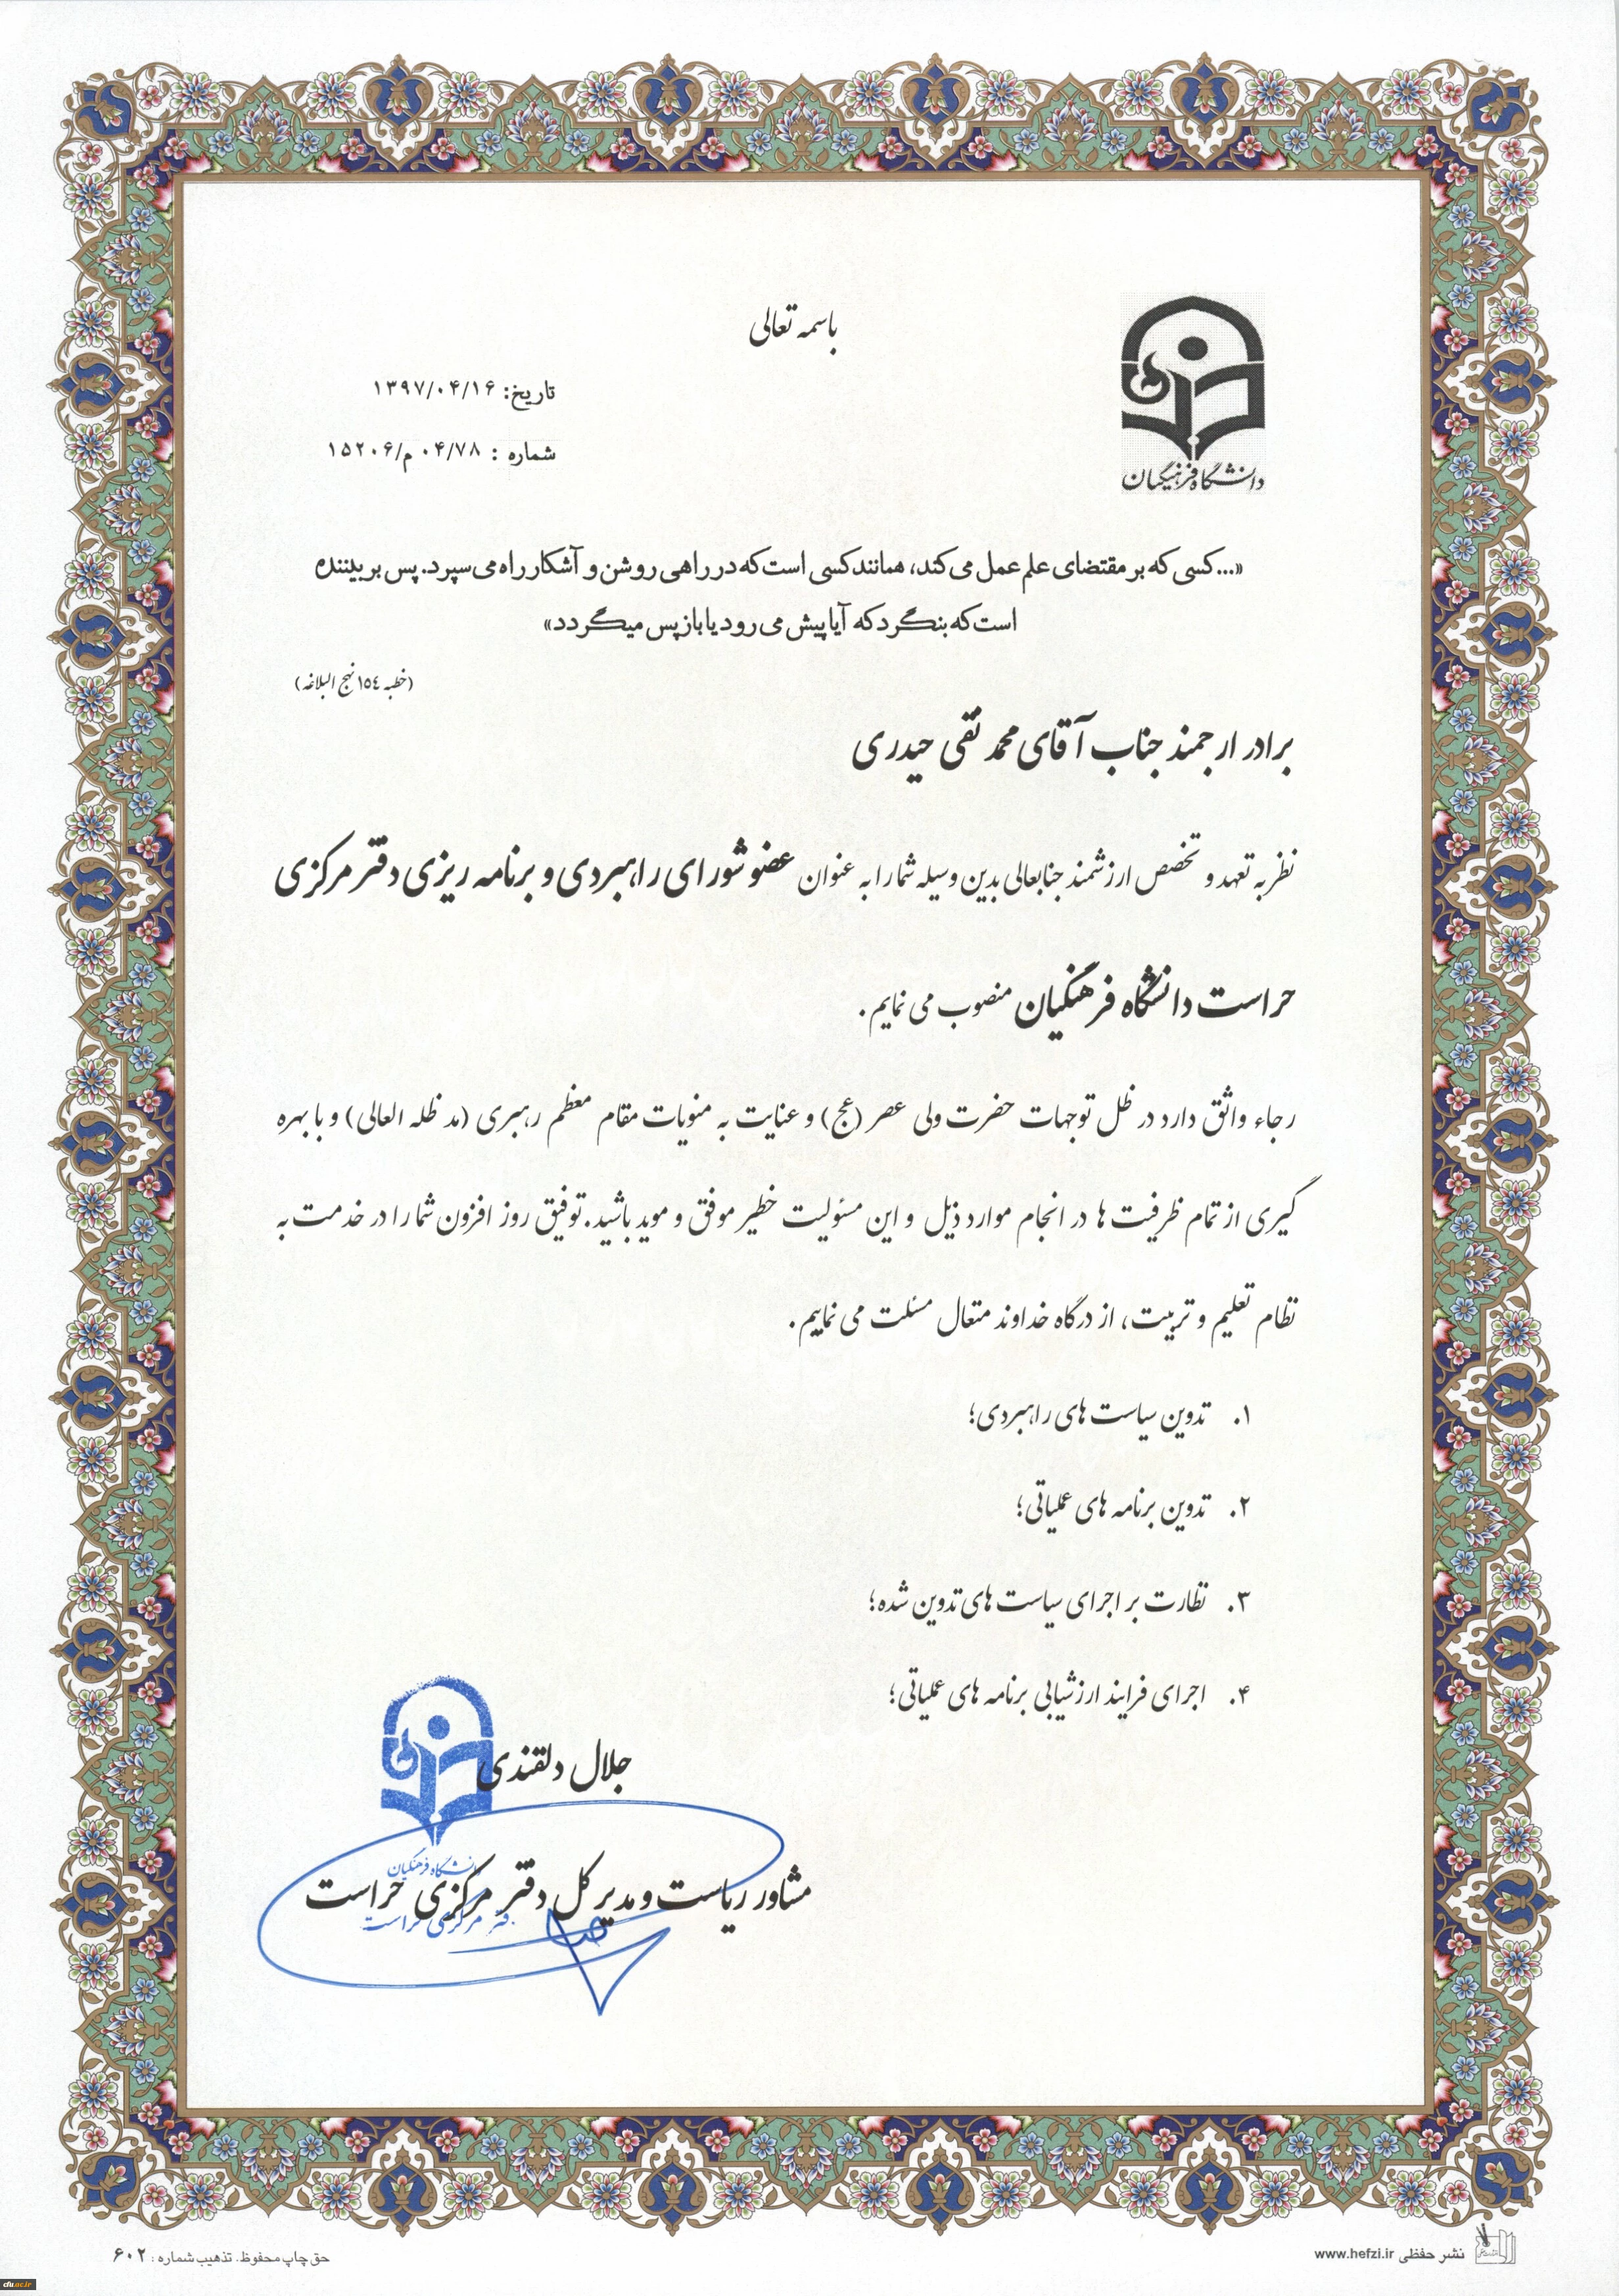 باسمه تعالی
تاریخ: ۱۳۹۷/۰۴/۱۶
شماره : ۰۴/۷۸ م/۱۵۲۰۶
دانشگاه فرهنگیان
«...کسی که بر مقتضای علم عمل می کند، همانند کسی است که در راهی روشن و آشکار راه می سپرد. پس بر بیننده
است که بنگرد که آیا پیش می رود یا باز پس میگردد»
(خطبه ١٥٤ نهج البلاغه)
برادر ارجمند جناب آقای محمد تقی حیدری
نظر به تعهد و تخصص ارزشمند جنابعالی بدین وسیله شما را به عنوان عضو شورای راهبردی و برنامه ریزی دفتر مرکزی
حراست دانشگاه فرهنگیان منصوب می نمایم.
رجاء واثق دارد در ظل توجهات حضرت ولی عصر (عج) و عنایت به منویات مقام معظم رهبری (مد ظله العالی) و با بهره
گیری از تمام ظرفیت ها در انجام موارد ذیل و این مسئولیت خطیر موفق و موید باشید. توفیق روز افزون شما را در خدمت به
نظام تعلیم و تربیت، از درگاه خداوند متعال مسئلت می نماییم.
۱. تدوین سیاست های راهبردی؛
۲. تدوین برنامه های عملیاتی؛
۳. نظارت بر اجرای سیاست های تدوین شده؛
۴. اجرای فرایند ارزشیابی برنامه های عملیاتی؛
جلال دلقندی
دانشگاه فرهنگیان
مشاور ریاست و مدیر کل دفتر مرکزی حراست
دفتر مرکزی حراست
نشر حفظی www.hefzi.ir
حق چاپ محفوظ. تذهیب شماره : ۶۰۲
cfu.ac.ir